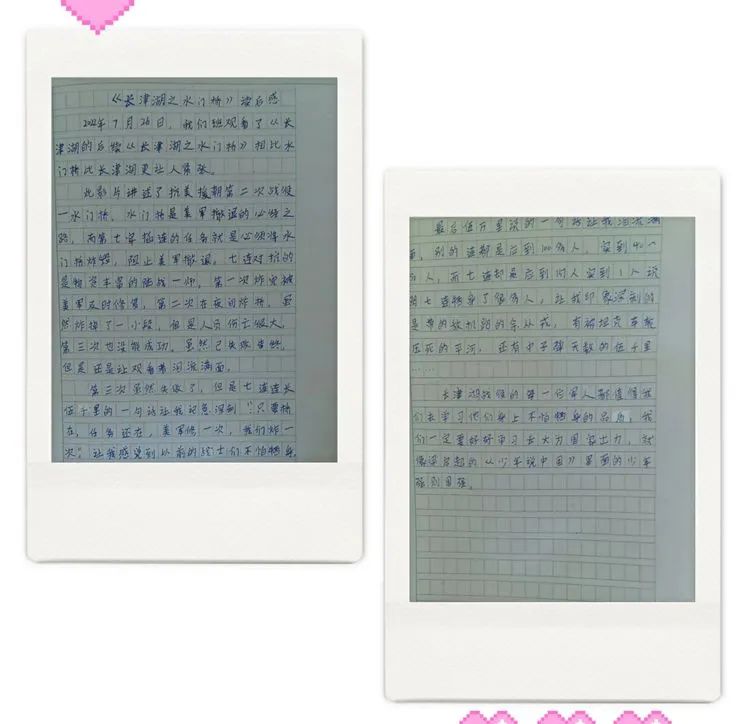 《长津湖之水门桥》读后感
2022年7月26日，我们班观看了《长
津湖的后续《长津湖之水门桥》相比水
门桥比长津湖更让人紧张。
此影片讲述了抗美援朝第二次战役
—水门桥，水门桥是美军撤退的必须之
路，而第七穿插连的任务就是必须将水
门桥炸毁，阻止美军撤退。七连对抗的
是物资丰富的陆战一师，第一次炸完被
美军及时修复，第二次在夜间炸桥，虽
然炸掉了一小段，但是人员伤亡很大。
第三次也没能成功。虽然已失败告终，
但是还是让观看者泪流满面。
第三次虽然失败了，但是七连连长
伍千里的一句话让我记忆深刻“只要桥
在，任务还在，美军修一次，我们炸一
次”让我感受到以前的战士们不怕牺牲，
最后伍万里说的一句话让我泪流满
面，别的连都是应到100多人，实到40
多人，而七连却是应到157人实到1人说
明七连牺牲了很多人，让我印象深刻的
是带的敌机跑的余从戎，有被坦克车
压死的平河，还有中子弹无数的伍千里
……
长津湖战役的每一位军人都值得我
们去学习他们身上不怕牺牲的品质，我
们一定要好好学习长大为国家出力，就
像梁启超的《少年说中国》里面的少年
强则国强。